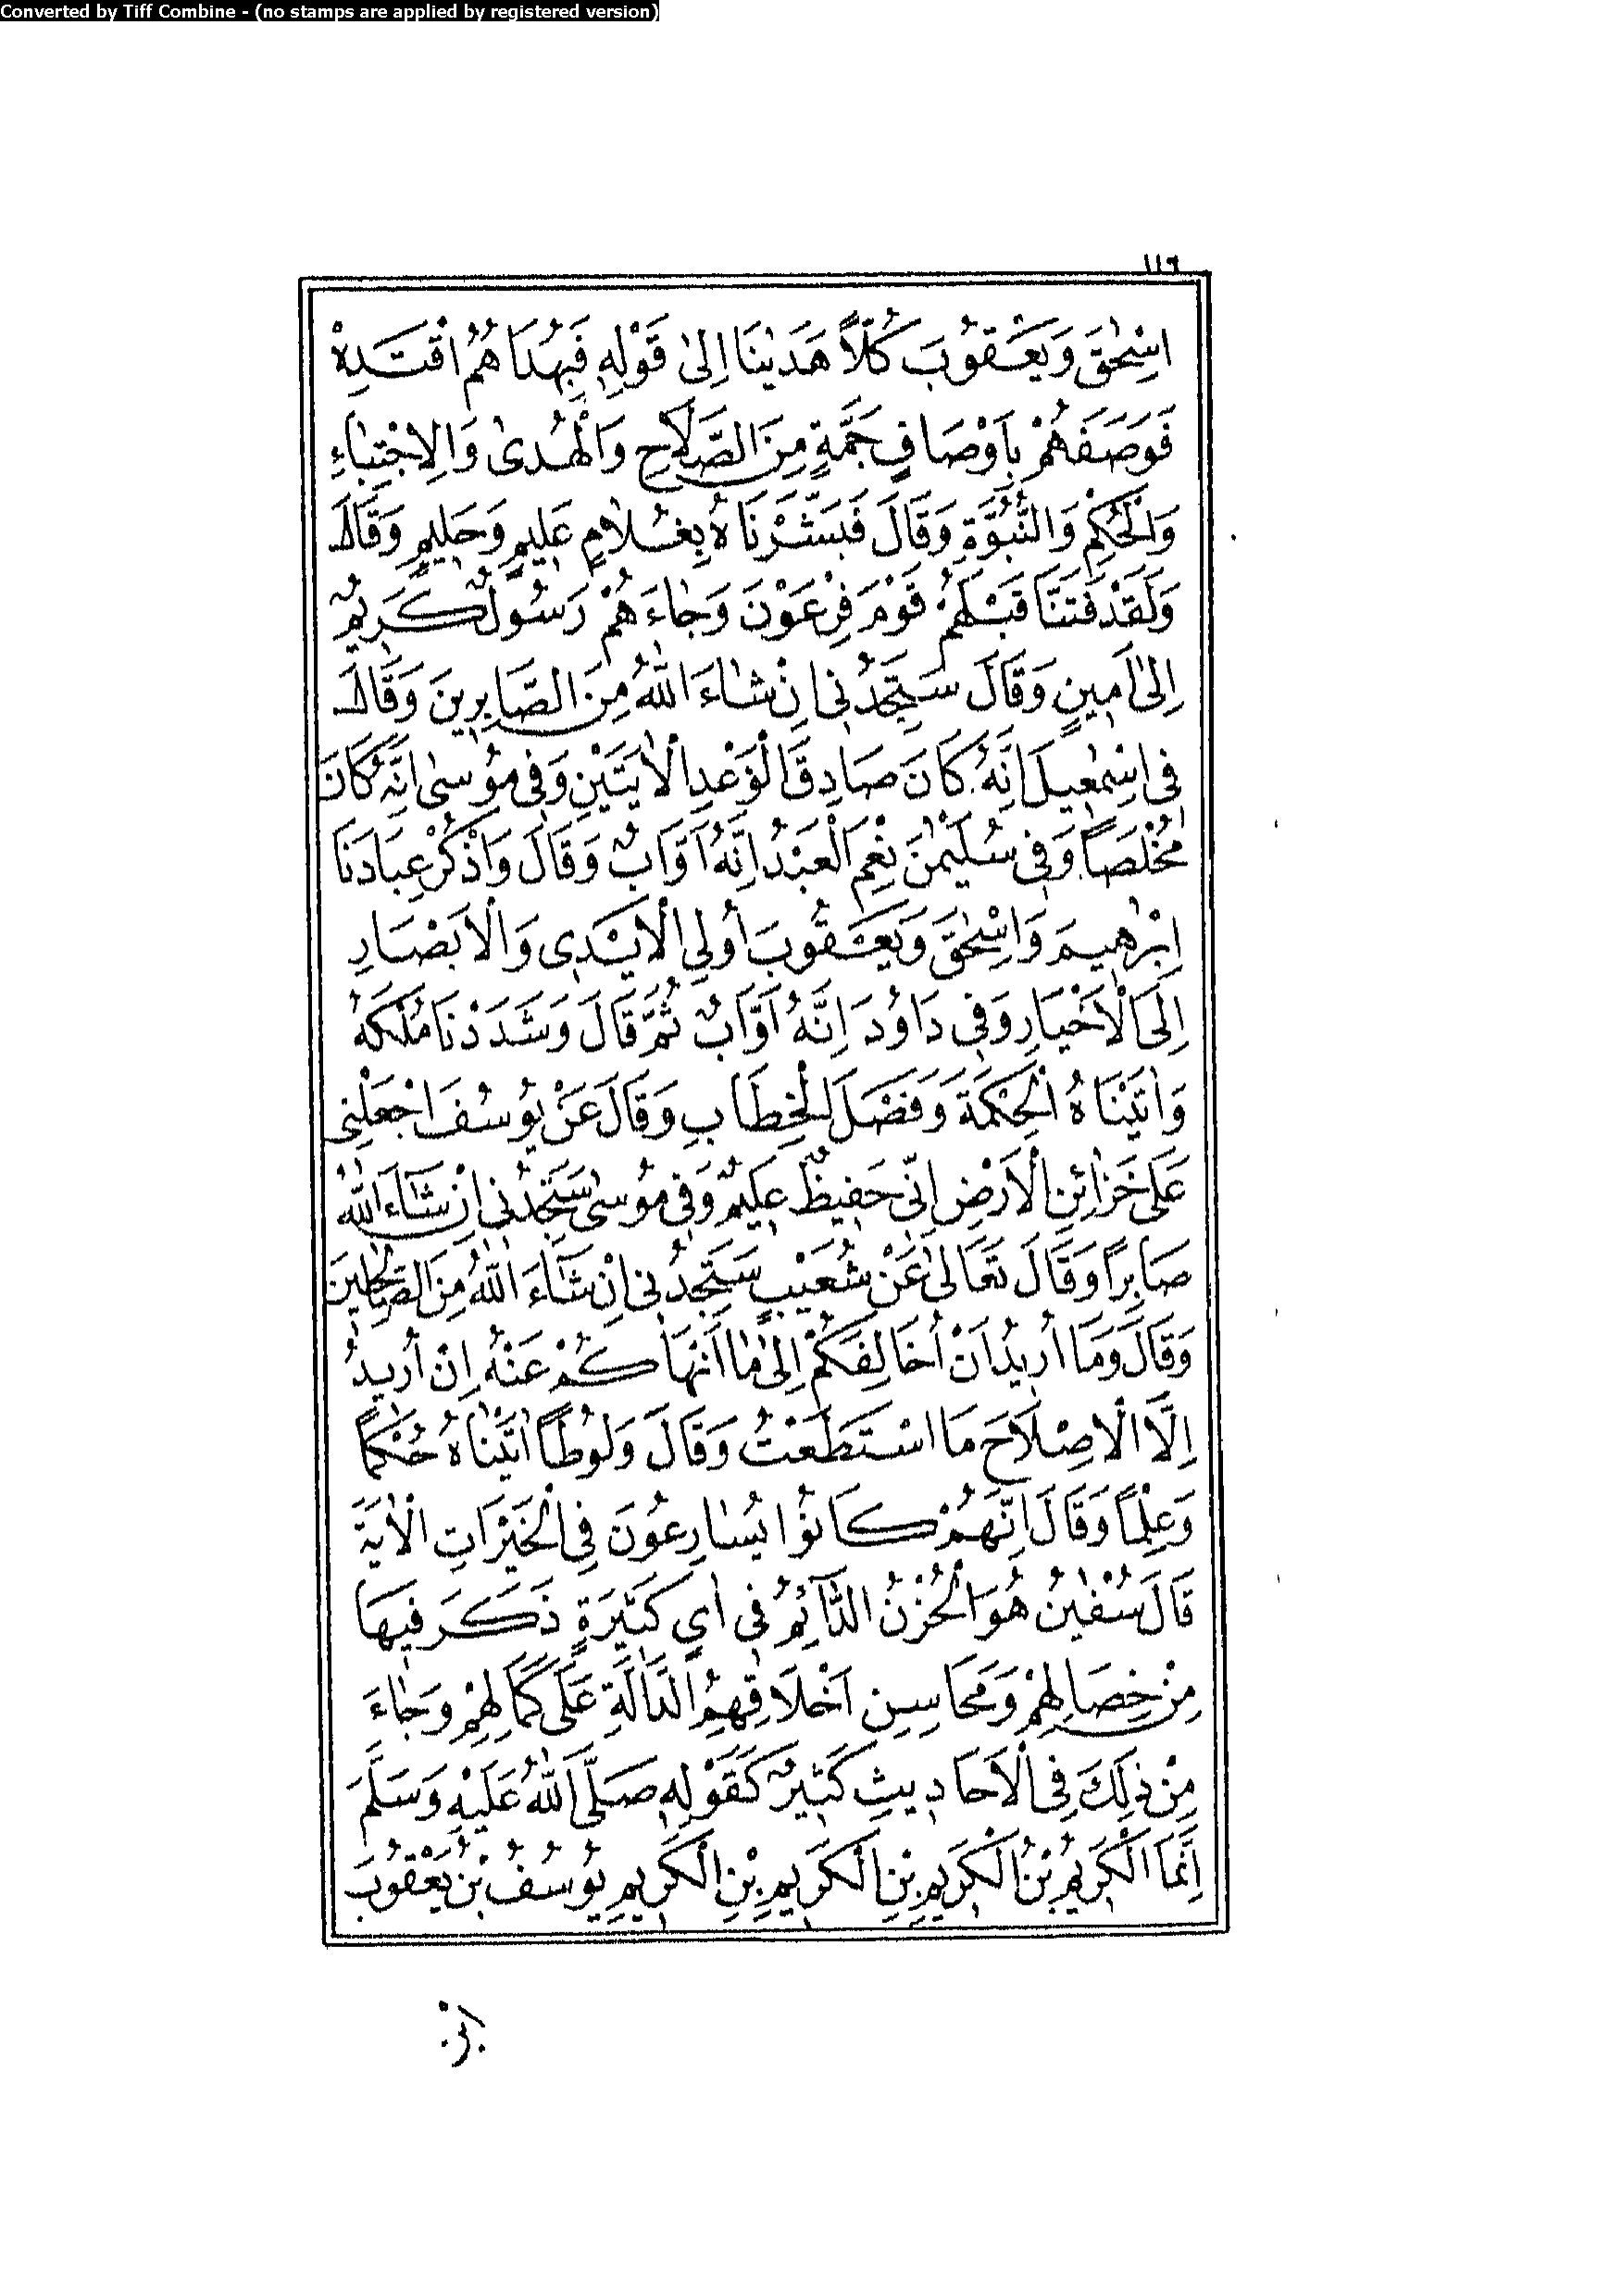 Converted by Tiff Combine - (no stamps are applied by registered version)
١١٦
اِسْحٰقَ وَيَعْقُوبَ كُلًّا هَدَيْنَا اِلىٰ قَوْلِهِ فَبِهُدَاهُمُ اقْتَدِهْ
فَوَصَفَهُمْ بِاَوْصَافٍ جَمَّةٍ مِنَ الصَّلَاحِ وَالْهُدىٰ وَالِاجْتِبٰاءِ
وَالْحُكْمِ وَالنُّبُوَّةِ وَقَالَ فَبَشَّرْنَاهُ بِغُلَامٍ عَلِيمٍ وَحَلِيمٍ وَقَالَ
وَلَقَدْ فَتَنَّا قَبْلَهُمْ قَوْمَ فِرْعَوْنَ وَجٰاءَهُمْ رَسُولٌ كَرِيمٌ
اِلىٰ اَمِينٍ وَقَالَ سَتَجِدُنِي اِنْ شٰاءَ اللّٰهُ مِنَ الصَّابِرِينَ وَقَالَ
فِي اِسْمٰعِيلَ اِنَّهُ كَانَ صَادِقَ الْوَعْدِ الْاٰيَتَيْنِ وَفِي مُوسىٰ اِنَّهُ كَانَ
مُخْلَصًا وَفِي سُلَيْمٰنَ نِعْمَ الْعَبْدُ اِنَّهُ اَوَّابٌ وَقَالَ وَاذْكُرْ عِبَادَنَا
اِبْرٰهِيمَ وَاِسْحٰقَ وَيَعْقُوبَ اُولِي الْاَيْدِي وَالْاَبْصَارِ
اِلَى الْاَخْيَارِ وَفِي دَاوُدَ اِنَّهُ اَوَّابٌ ثُمَّ قَالَ وَشَدَدْنَا مُلْكَهُ
وَاٰتَيْنَاهُ الْحِكْمَةَ وَفَصْلَ الْخِطَابِ وَقَالَ عَنْ يُوسُفَ اجْعَلْنِي
عَلىٰ خَزَائِنِ الْاَرْضِ اِنِّي حَفِيظٌ عَلِيمٌ وَفِي مُوسىٰ سَتَجِدُنِي اِنْ شَاءَ اللّٰهُ
صَابِرًا وَقَالَ تَعَالىٰ عَنْ شُعَيْبٍ سَتَجِدُنِي اِنْ شَاءَ اللّٰهُ مِنَ الصَّالِحِينَ
وَقَالَ وَمَا اُرِيدُ اَنْ اُخَالِفَكُمْ اِلىٰ مٰا اَنْهَاكُمْ عَنْهُ اِنْ اُرِيدُ
اِلَّا الْاِصْلَاحَ مَا اسْتَطَعْتُ وَقَالَ وَلُوطًا اٰتَيْنَاهُ حُكْمًا
وَعِلْمًا وَقَالَ اِنَّهُمْ كَانُوا يُسَارِعُونَ فِي الْخَيْرَاتِ الْاٰيَةَ
قَالَ سُفْيٰنُ هُوَ الْحُزْنُ الدَّائِمُ فِي اٰيٍ كَثِيرَةٍ ذَكَرَ فِيهَا
مِنْ خِصَالِهِمْ وَمَحَاسِنِ اَخْلَاقِهِمُ الدَّالَّةِ عَلىٰ كَمَالِهِمْ وَجٰاءَ
مِنْ ذٰلِكَ فِي الْاَحَادِيثِ كَثِيرٌ كَقَوْلِهِ صَلَّى اللّٰهُ عَلَيْهِ وَسَلَّمَ
اِنَّمَا الْكَرِيمُ بْنُ الْكَرِيمِ بْنِ الْكَرِيمِ بْنِ الْكَرِيمِ يُوسُفُ بْنُ يَعْقُوبَ